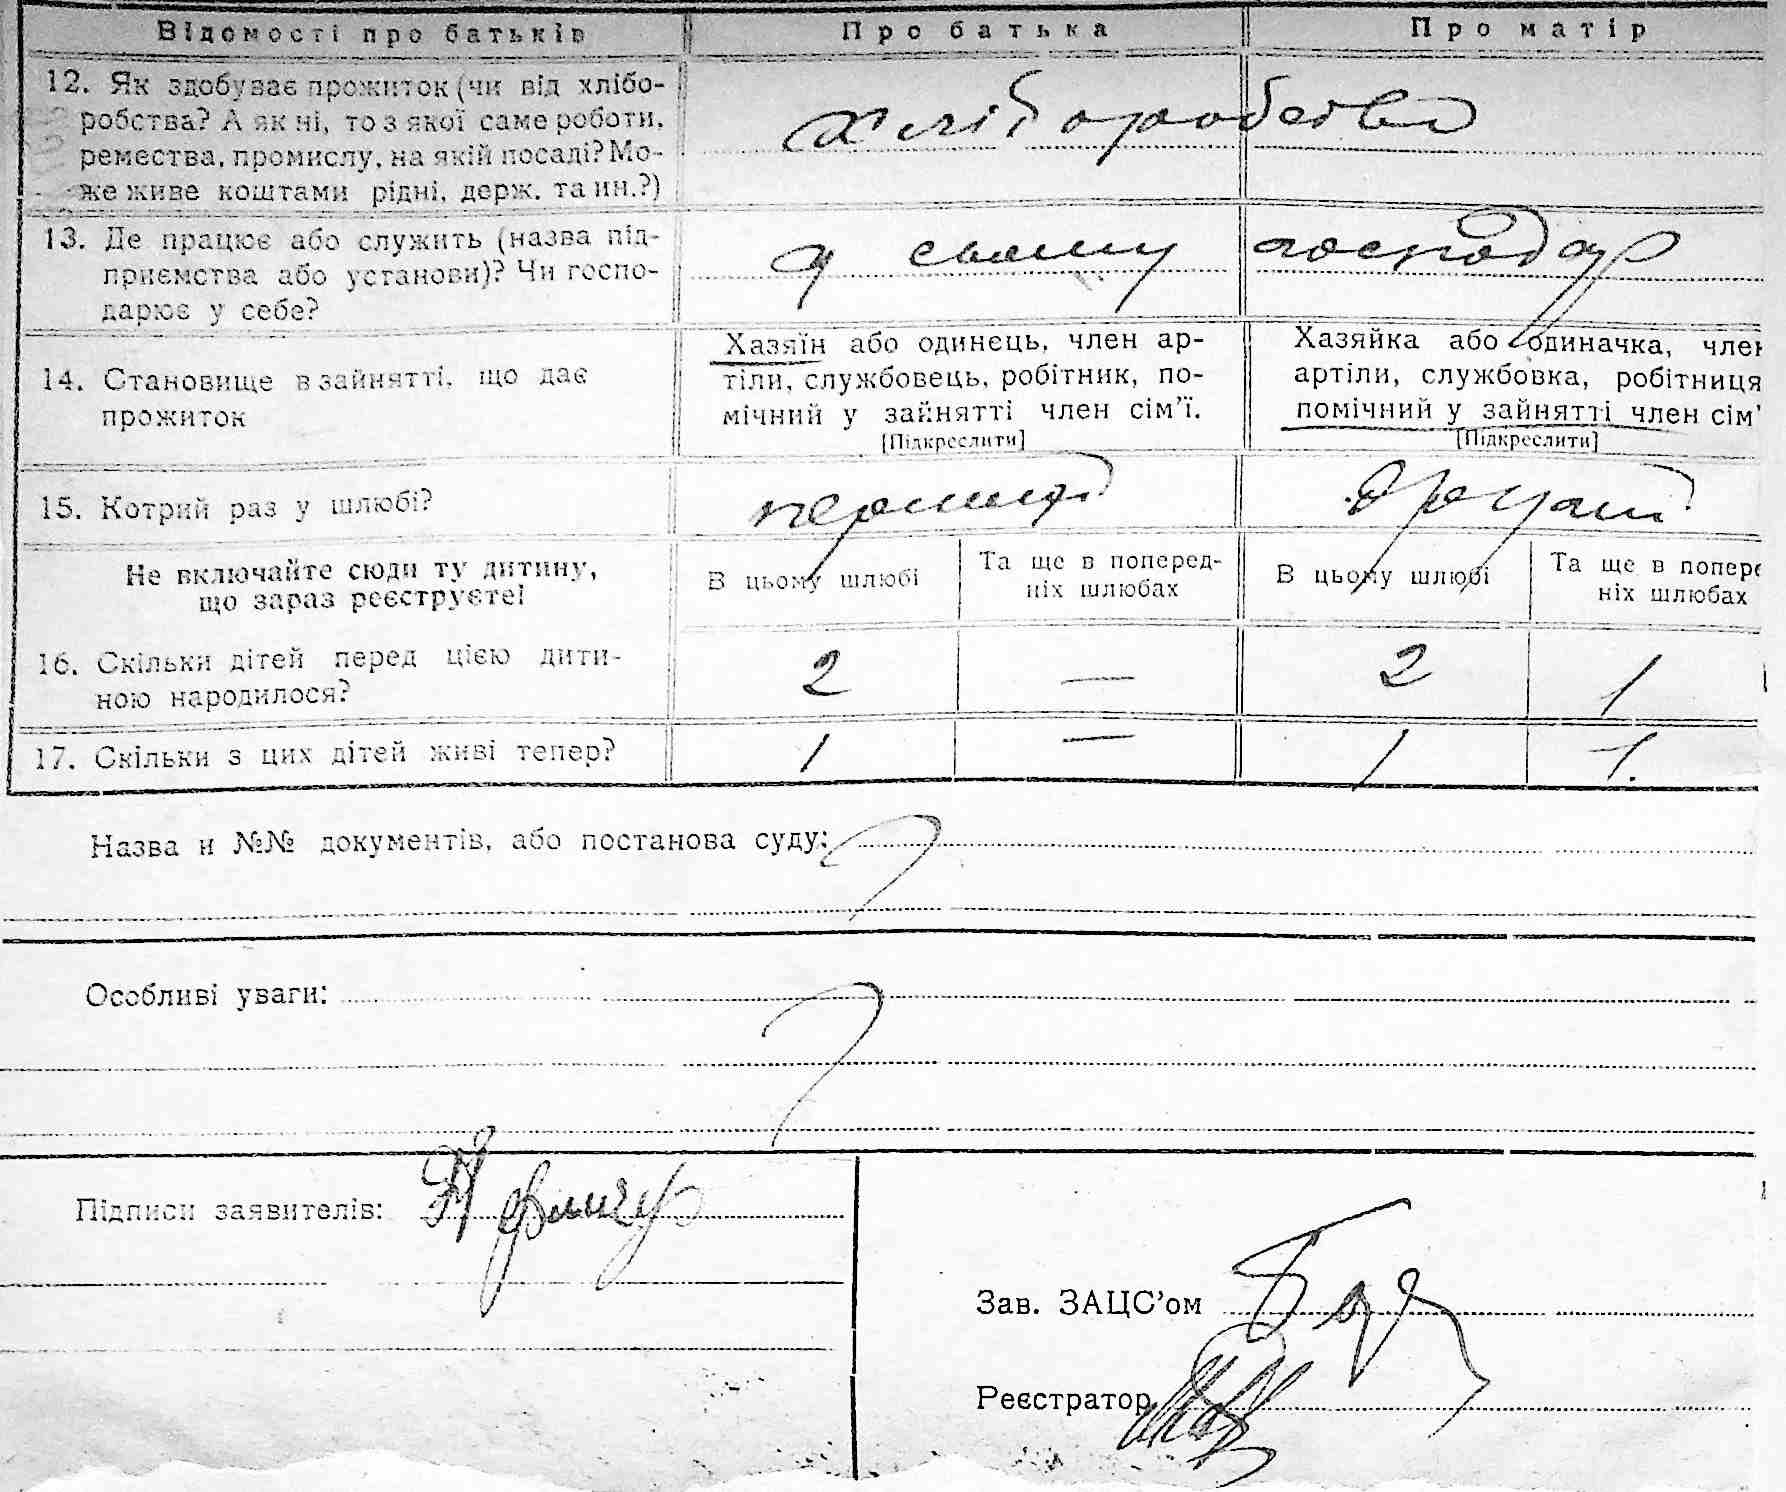 Відомості про батьків Про батька Про матір
12. Як здобуває прожиток (чи від хлібо-
робства? А як ні, то з якої саме роботи,
ремества, промислу, на якій посаді? Мо-
же живе коштами рідні, держ. та ин.?)
хліборобство
13. Де працює або служить (назва під-
приємства або установи)? Чи госпо-
дарює у себе?
у своему господар
14. Становище в зайнятті, що дає
прожиток
Хазяїн або одинець, член ар-
тіли, службовець, робітник, по-
мічний у зайнятті член сім'ї.
[Підкреслити]
Хазяйка або одиначка, член
артіли, службовка, робітниця
помічний у зайнятті член сім'
[Підкреслити]
15. Котрий раз у шлюбі? перший другий
Не включайте сюди ту дитину,
що зараз реєструєте!
В цьому шлюбі
Та ще в поперед-
ніх шлюбах
В цьому шлюбі
Та ще в попере
ніх шлюбах
16. Скільки дітей перед цією дити-
ною народилося?
2 — 2 1
17. Скільки з цих дітей живі тепер? 1 — 1 1.
Назва и №№ документів, або постанова суду:
Особливі уваги:
Підписи заявителів:
Зав. ЗАЦС'ом
Реєстратор